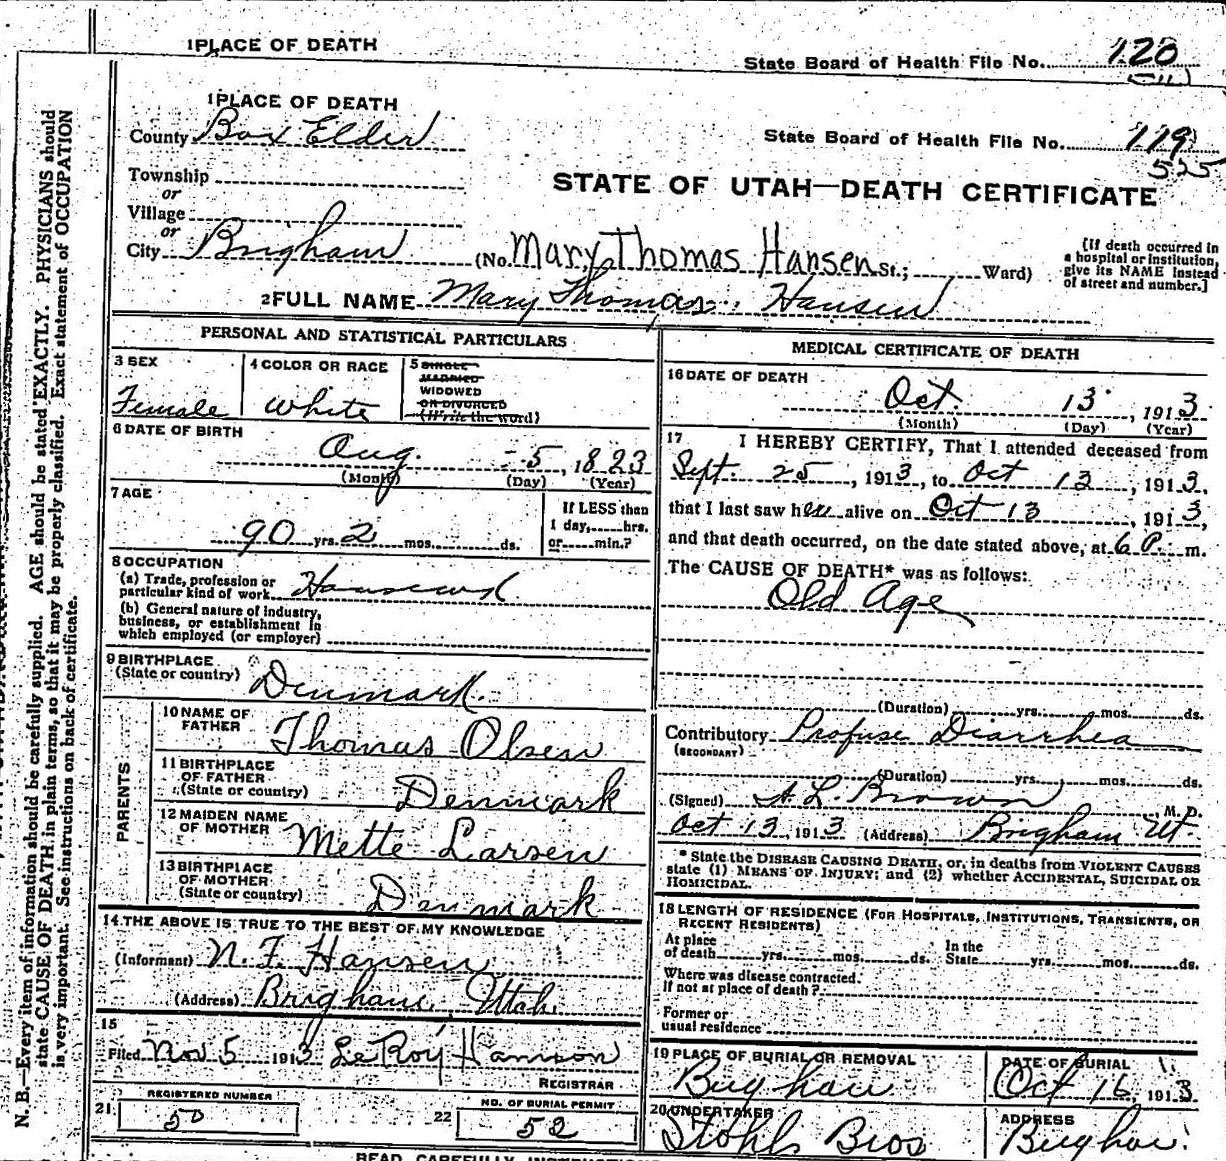 1 PLACE OF DEATH
State Board of Health File No. 120
1 PLACE OF DEATH
County Box Elder
State Board of Health File No. 119
525
Township
or
Village
or
City Brigham (No. Mary Thomas Hansen St.; Ward)
STATE OF UTAH—DEATH CERTIFICATE
[If death occurred in
a hospital or institution,
give its NAME instead
of street and number.]
2 FULL NAME Mary Thomas Hansen
PERSONAL AND STATISTICAL PARTICULARS
3 SEX
Female
4 COLOR OR RACE
White
5 SINGLE
MARRIED
WIDOWED
OR DIVORCED
(Write the word)
6 DATE OF BIRTH
Aug. 5, 1823
(Month) (Day) (Year)
7 AGE
90 yrs. 2 mos. ds.
If LESS than
1 day, hrs.
or min.?
8 OCCUPATION
(a) Trade, profession or
particular kind of work
(b) General nature of industry,
business, or establishment in
which employed (or employer)
9 BIRTHPLACE
(State or country) Denmark.
PARENTS
10 NAME OF
FATHER Thomas Olsen
11 BIRTHPLACE
OF FATHER
(State or country) Denmark
12 MAIDEN NAME
OF MOTHER Mette Larsen
13 BIRTHPLACE
OF MOTHER
(State or country) Denmark
14 THE ABOVE IS TRUE TO THE BEST OF MY KNOWLEDGE
(Informant) N. F. Hansen
(Address) Brigham, Utah.
15
Filed Nov 5 1913 LeRoy Hamson
REGISTRAR
21 REGISTERED NUMBER
50
22 NO. OF BURIAL PERMIT
52
MEDICAL CERTIFICATE OF DEATH
16 DATE OF DEATH
Oct. 13, 1913
(Month) (Day) (Year)
17 I HEREBY CERTIFY, That I attended deceased from
Sept. 25, 1913, to Oct 13, 1913,
that I last saw her alive on Oct 13, 1913,
and that death occurred, on the date stated above, at 6 P. m.
The CAUSE OF DEATH* was as follows:
Old Age
(Duration) yrs. mos. ds.
Contributory Profuse Diarrhea
(SECONDARY)
(Duration) yrs. mos. ds.
(Signed) A. L. Brown M.D.
Oct 13 1913 (Address) Brigham Ut.
* State the DISEASE CAUSING DEATH, or, in deaths from VIOLENT CAUSES
state (1) MEANS OF INJURY; and (2) whether ACCIDENTAL, SUICIDAL OR
HOMICIDAL.
18 LENGTH OF RESIDENCE (FOR HOSPITALS, INSTITUTIONS, TRANSIENTS, OR
RECENT RESIDENTS)
At place
of death yrs. mos. ds.
In the
State yrs. mos. ds.
Where was disease contracted.
If not at place of death?
Former or
usual residence
19 PLACE OF BURIAL OR REMOVAL
Brigham
DATE OF BURIAL
Oct 16, 1913
20 UNDERTAKER
Stohl Bros
ADDRESS
Brigham
READ CAREFULLY INSTRUCTIONS
N. B.—Every item of information should be carefully supplied. AGE should be stated EXACTLY. PHYSICIANS should
state CAUSE OF DEATH in plain terms, so that it may be properly classified. Exact statement of OCCUPATION
is very important. See instructions on back of certificate.